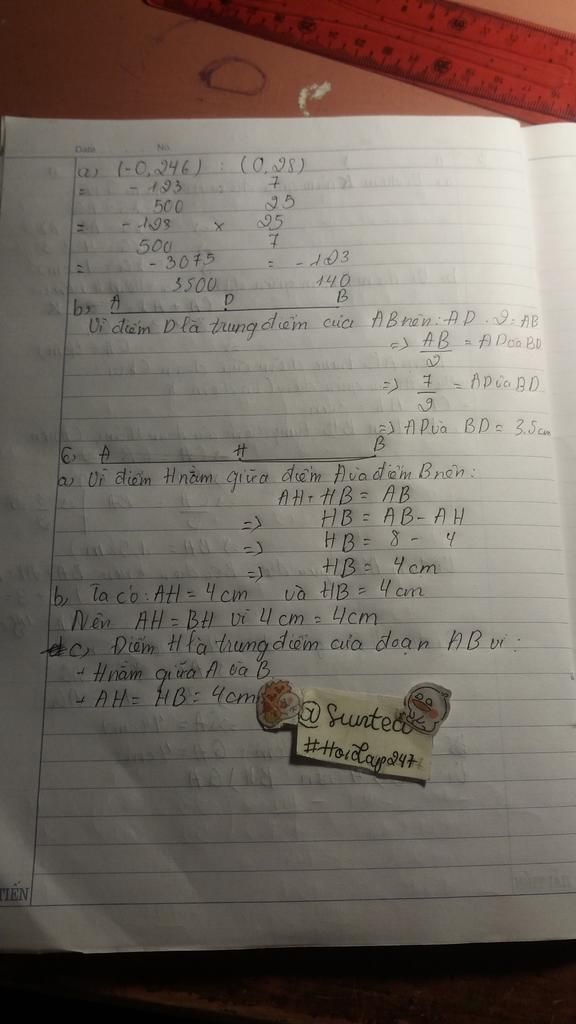 Date No.
a, (-0,246) : (0,28)
= -123 7
500 25
= -123 x 25
500 7
= -3075 = -123
3500 140
b, A D B
Vì điểm D là trung điểm của AB nên: AD . 2 = AB
=> AB = AD và BD
2
=> 7 = AD và BD
2
=> AD và BD = 3.5cm
c, A H B
a, Vì điểm H nằm giữa điểm A và điểm B nên:
AH + HB = AB
=> HB = AB - AH
=> HB = 8 - 4
=> HB = 4 cm
b, Ta có: AH = 4 cm và HB = 4 cm
Nên AH = BH vì 4 cm = 4cm
c, Điểm H là trung điểm của đoạn AB vì:
+ H nằm giữa A và B
+ AH = HB = 4cm
@Suntea
#Hoidap247
TIẾN